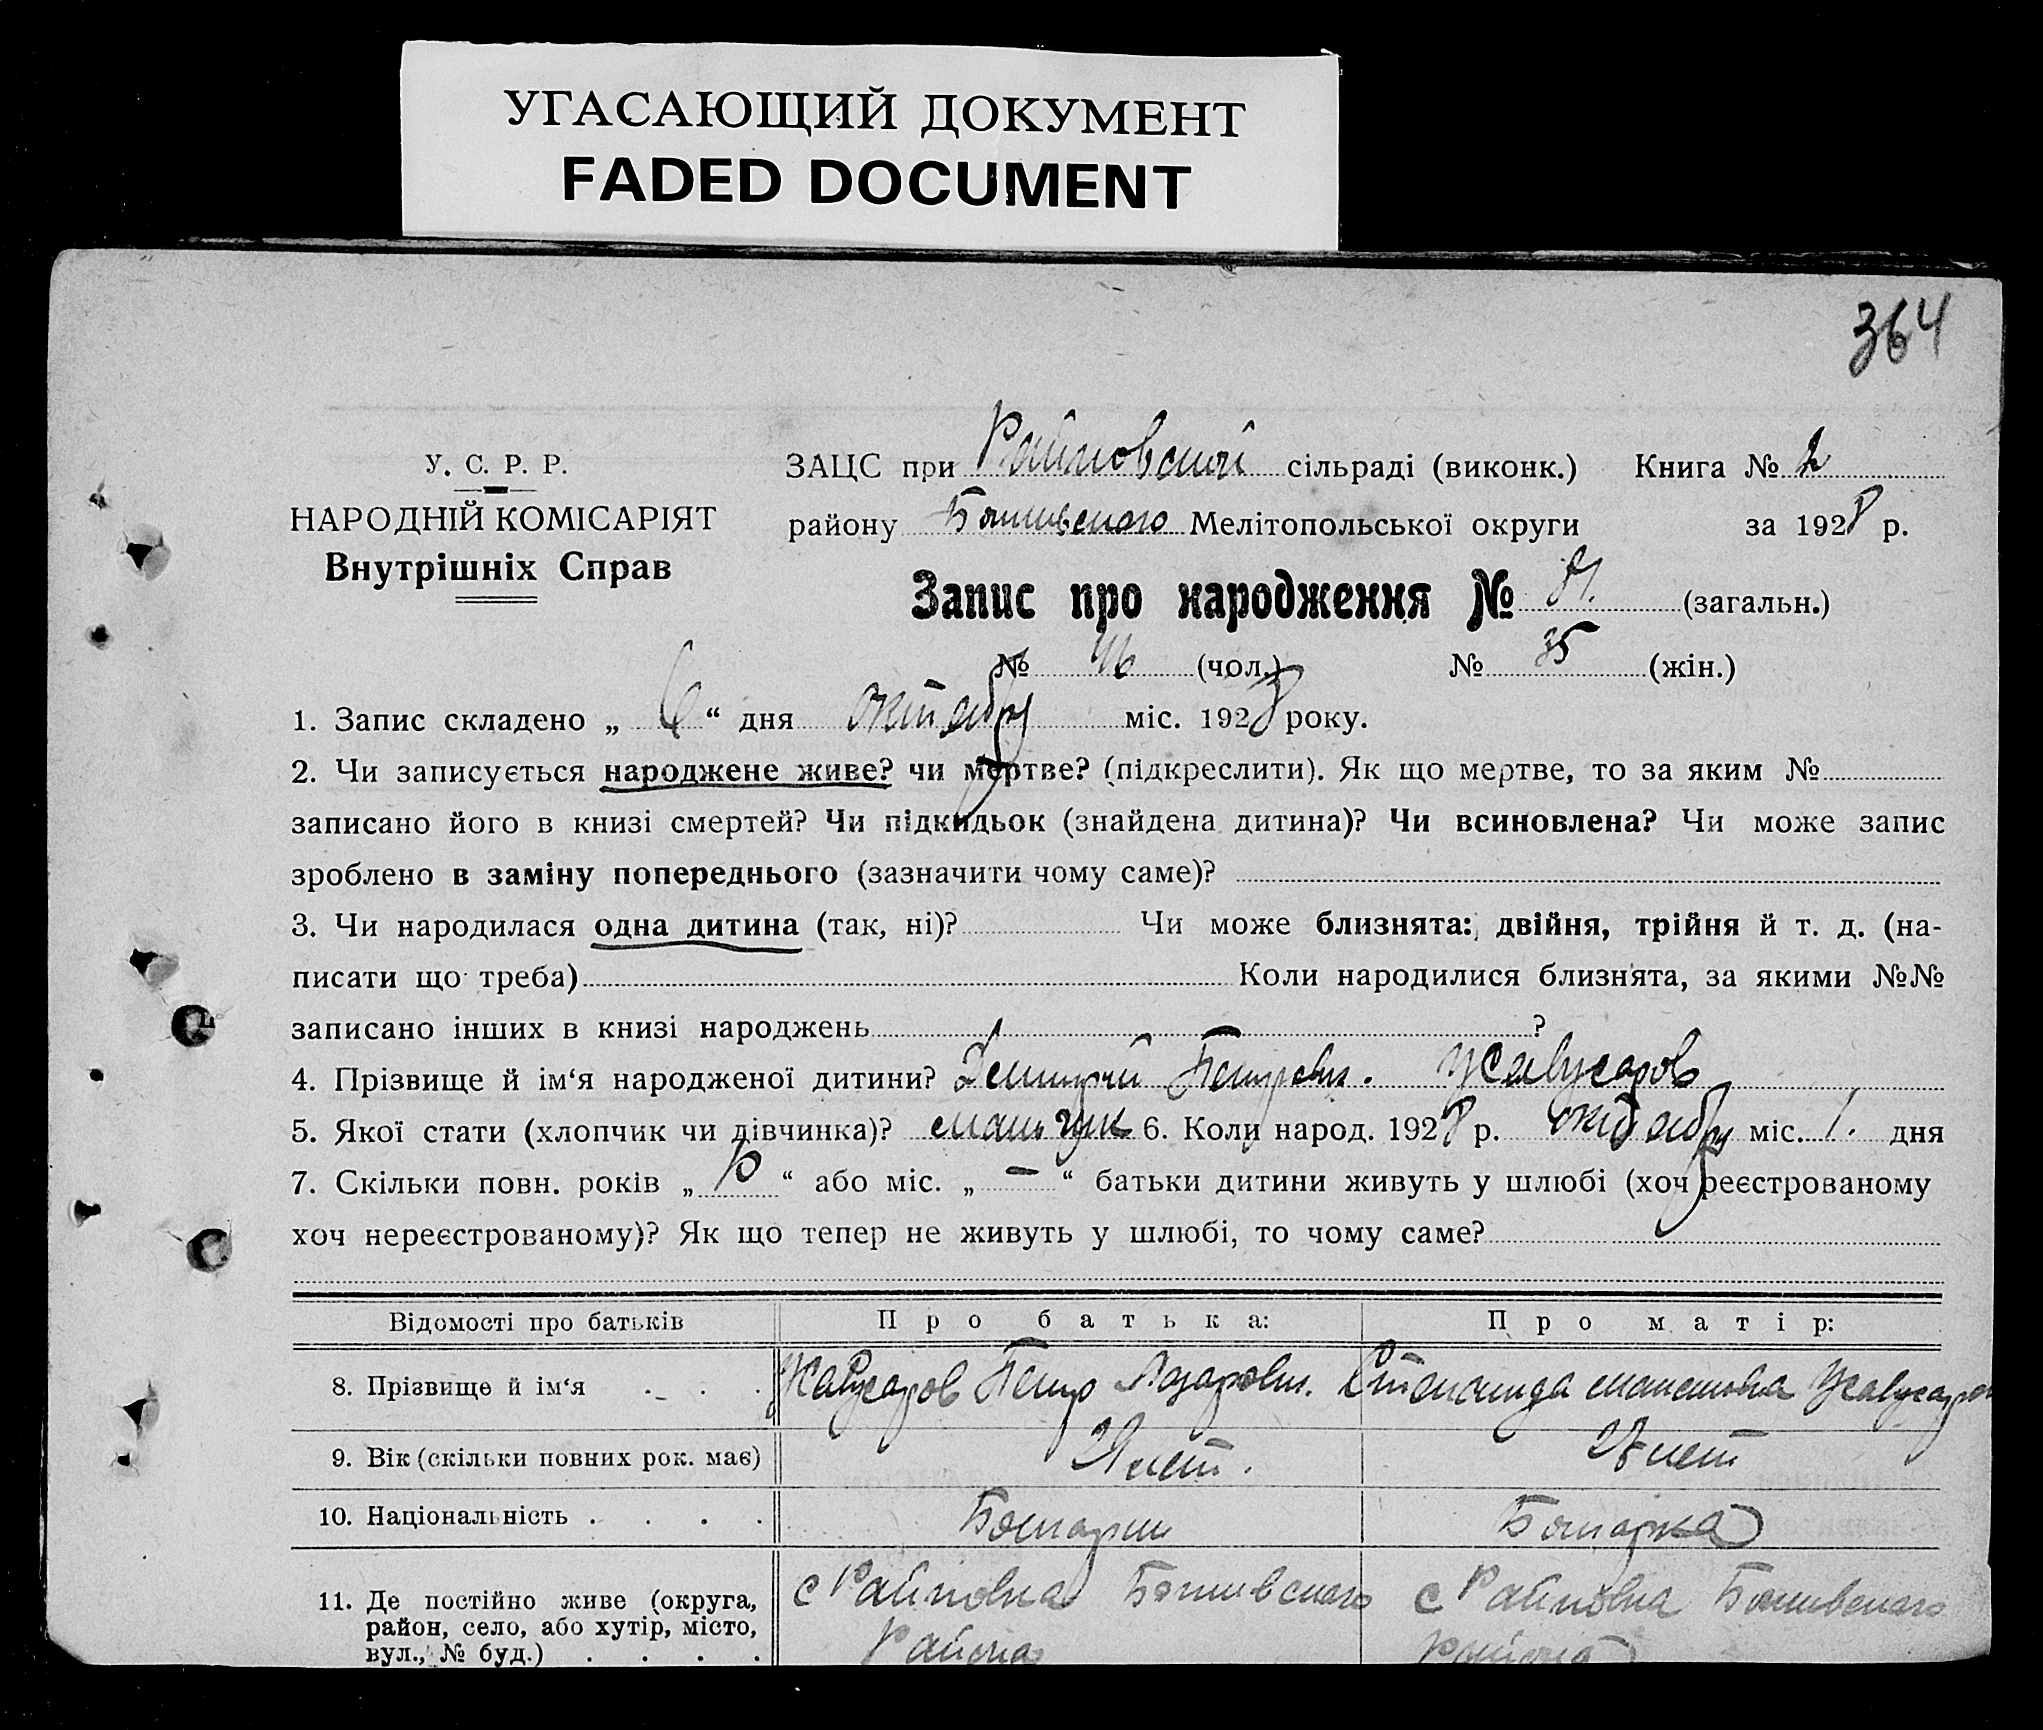 УГАСАЮЩИЙ ДОКУМЕНТ
FADED DOCUMENT
364
У. С. Р. Р.
НАРОДНІЙ КОМІСАРІЯТ
Внутрішніх Справ
ЗАЦС при Райновской сільраді (виконк.) Книга № 2
району Ботиевского Мелітопольської округи за 1928 р.
Запис про народження № 81. (загальн.)
№ 46 (чол.) № 35 (жін.)
1. Запис складено „ 6 “ дня октября міс. 1928 року.
2. Чи записується народжене живе? чи мертве? (підкреслити). Як що мертве, то за яким №
записано його в книзі смертей? Чи підкидьок (знайдена дитина)? Чи всиновлена? Чи може запис
зроблено в заміну попереднього (зазначити чому саме)?
3. Чи народилася одна дитина (так, ні)? Чи може близнята: двійня, трійня й т. д. (на-
писати що треба) Коли народилися близнята, за якими №№
записано інших в книзі народжень ?
4. Прізвище й ім‘я народженої дитини? Дмитрий Петрович.
5. Якої стати (хлопчик чи дівчинка)? мальчик 6. Коли народ. 1928 р. октября міс. 1. дня
7. Скільки повн. років „ “ або міс. „ — “ батьки дитини живуть у шлюбі (хоч реєстрованому
хоч нереєстрованому)? Як що тепер не живуть у шлюбі, то чому саме?
Відомості про батьків Про батька: Про матір:
8. Прізвище й ім‘я . . . Петр Лазарович. Степанида
9. Вік (скільки повних рок. має) лет. 27 лет
10. Національність . . . . Болгарин Болгарка
11. Де постійно живе (округа, с Райновка Ботиевского с Райновка Ботиевского
район, село, або хутір, місто,
вул., № буд.) . . . . Района Района